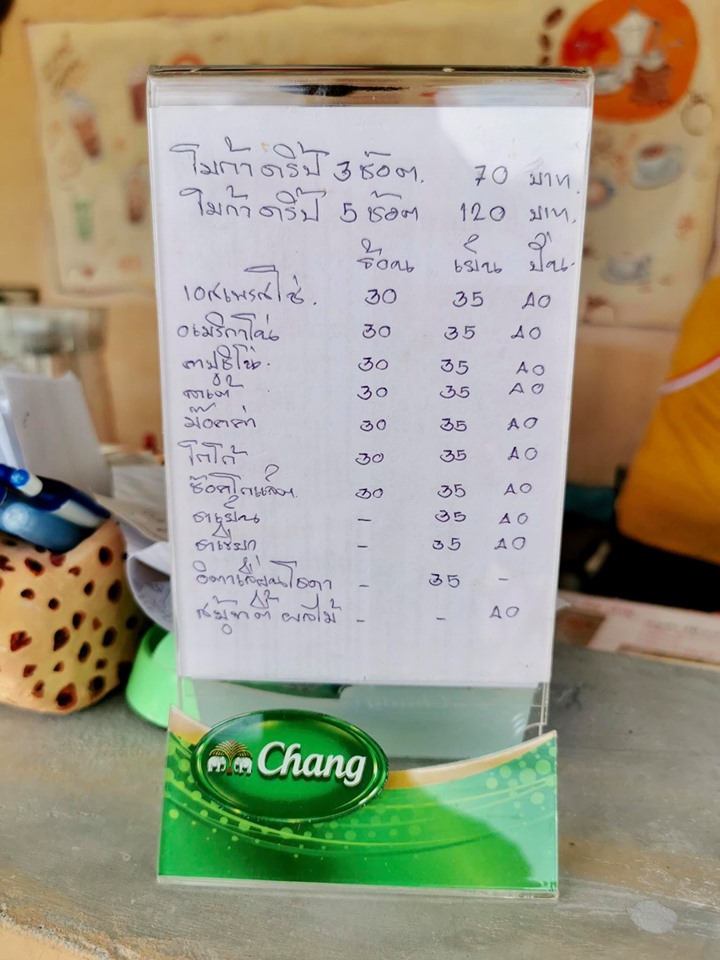 โมก้า ดริป 3 ช๊อต. 70 บาท.
โมก้า ดริป 5 ช๊อต 120 บาท.
ร้อน เย็น ปั่น.
เอสเพรสโซ่. 30 35 40
อเมริกาโน่ 30 35 40
คาปูชิโน่. 30 35 40
ลาเต้ 30 35 40
ม๊อคค่า 30 35 40
โกโก้ 30 35 40
ช๊อคโกแล็ต. 30 35 40
ชาเย็น - 35 40
ชาเขียว - 35 40
อิตาเลี่ยนโซดา - 35 -
สมู้ทตี้ ผลไม้ - - 40
Chang